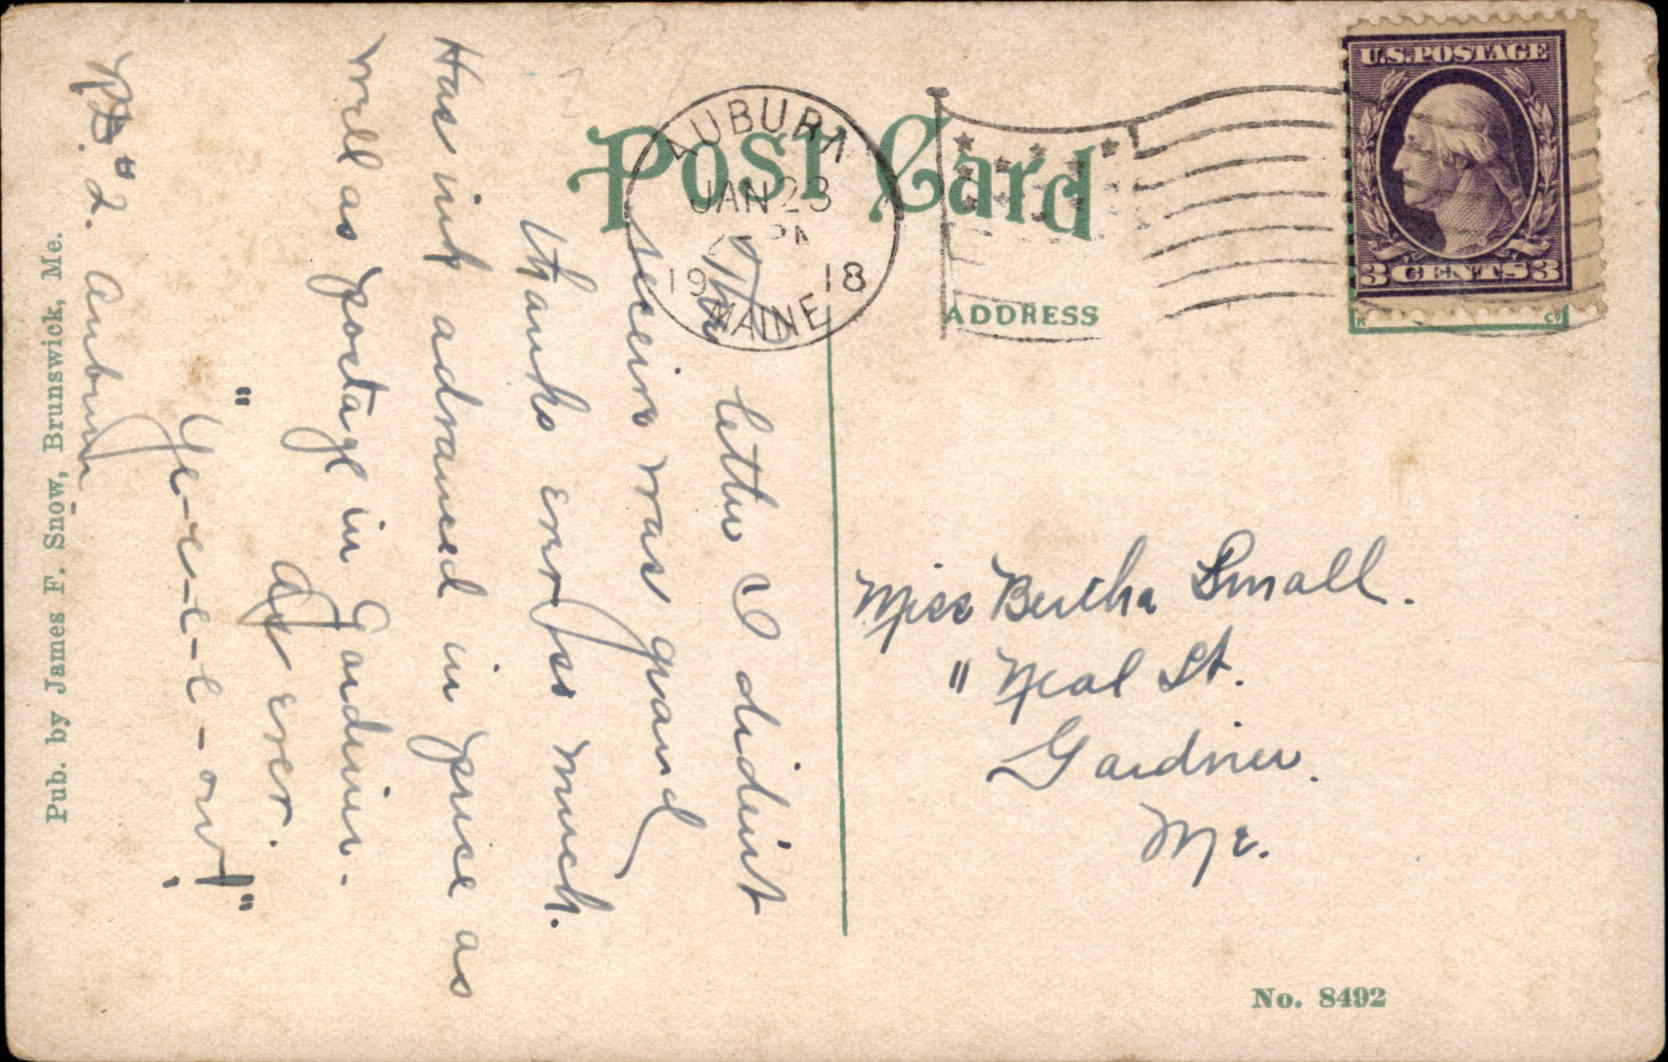 POST CARD
AUBURN
JAN 23
PM
1918
MAINE
U.S. POSTAGE
3 CENTS 3
ADDRESS
The letter I didint
receive was grand
thanks ever so much.
Has ink advanced in price as
well as postage in Gardiner.
As ever.
"Ye-e-e-e-ow!"
#2. Auburn
Pub. by James F. Snow, Brunswick, Me.
Miss Bertha Small.
" Neal St.
Gardiner.
Me.
No. 8492